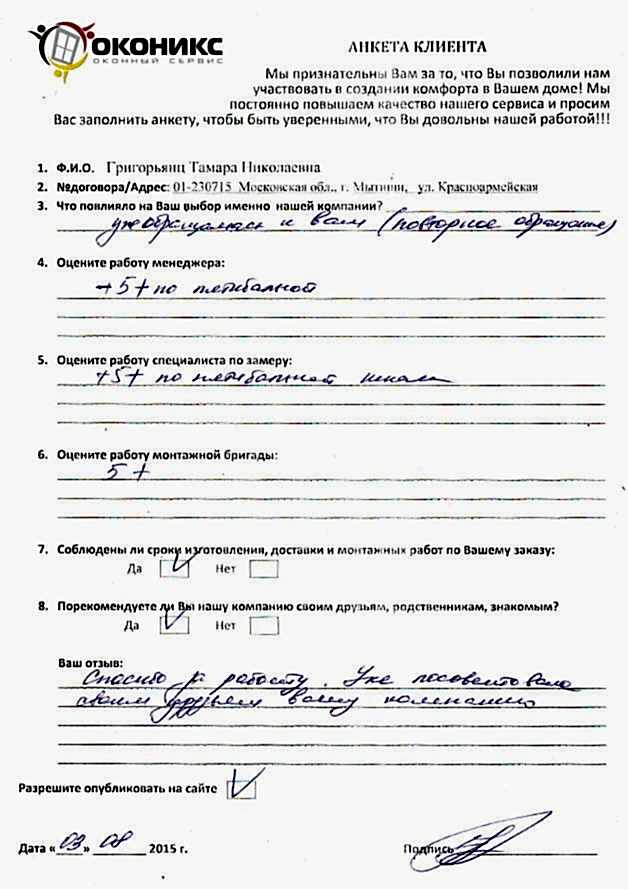 ОКОНИКС
ОКОННЫЙ СЕРВИС
АНКЕТА КЛИЕНТА
Мы признательны Вам за то, что Вы позволили нам
участвовать в создании комфорта в Вашем доме! Мы
постоянно повышаем качество нашего сервиса и просим
Вас заполнить анкету, чтобы быть уверенными, что Вы довольны нашей работой!!!
1. Ф.И.О. Григорьянц Тамара Николаевна
2. №договора/Адрес: 01-230715 Московская обл., г. Мытищи, ул. Красноармейская
3. Что повлияло на Ваш выбор именно нашей компании?
уже обращалась к вам (повторное обращение)
4. Оцените работу менеджера:
+5+ по пятибальной
5. Оцените работу специалиста по замеру:
+5+ по пятибальной шкале
6. Оцените работу монтажной бригады:
5+
7. Соблюдены ли сроки изготовления, доставки и монтажных работ по Вашему заказу:
Да Нет
8. Порекомендуете ли Вы нашу компанию своим друзьям, родственникам, знакомым?
Да Нет
Ваш отзыв:
Спасибо за работу. Уже посоветовала
своим друзьям вашу компанию
Разрешите опубликовать на сайте
Дата «03» 08 2015 г. Подпись